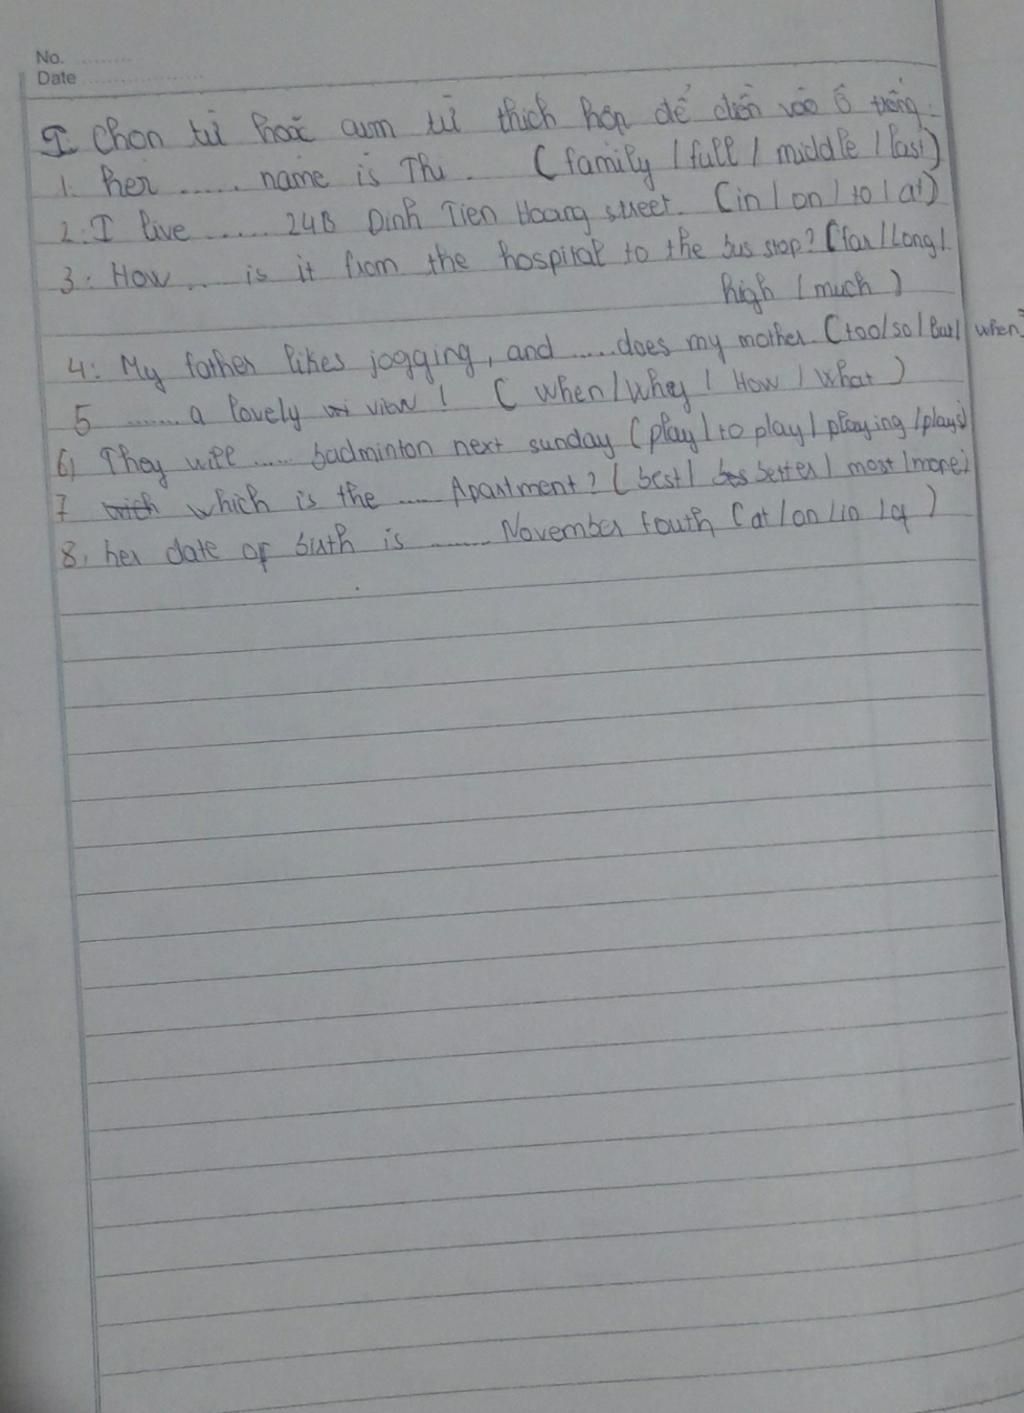 No. ............
Date ........................
I Chọn từ hoặc cụm từ thích hợp để điền vào ô trống.
1. her ...... name is Thi. (family / full / middle / last)
2. I live ...... 24B Dinh Tien Hoang street. (in / on / to / at)
3. How .... is it from the hospital to the bus stop? (far / Long /
high / much)
4: My father likes jogging, and .....does my mother. (too/so/but/ when)
5 ....... a lovely view! ( when / why / How / what )
6) They will ..... badminton next sunday (play / to play / playing / plays)
7 which is the .... Apartment? (best / better / most / more)
8. her date of birth is ....... November fouth (at / on / in / of )